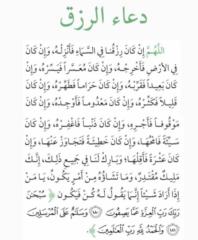 دعاء الرزق
اللَّهُمَّ إِنْ كَانَ رِزْقُنَا فِي السَّمَاءِ فَأَنْزِلْهُ، وَإِنْ كَانَ
فِي الأَرْضِ فَأَخْرِجْهُ، وَإِنْ كَانَ مُعَسَّراً فَيَسِّرْهُ، وَإِنْ
كَانَ بَعِيداً فَقَرِّبْهُ، وَإِنْ كَانَ حَرَاماً فَطَهِّرْهُ، وَإِنْ كَانَ
قَلِيلاً فَكَثِّرْهُ، وَإِنْ كَانَ مَعْدُوماً فَأَوْجِدْهُ، وَإِنْ كَانَ
مَوْقُوفاً فَأَجْرِهِ، وَإِنْ كَانَ ذَنْباً فَاغْفِرْهُ، وَإِنْ كَانَ
سَيِّئَةً فَامْحُهَا، وَإِنْ كَانَ خَطِيئَةً فَتَجَاوَزْ عَنْهَا، وَإِنْ
كَانَ عَثْرَةً فَأَقِلْهَا، وَبَارِكْ لَنَا فِي جَمِيعِ ذَلِكَ، إِنَّكَ
مَلِيكٌ مُقْتَدِرٌ، وَمَا تَشَاؤُهُ مِنْ أَمْرٍ يَكُونُ، يَا مَنْ
إِذَا أَرَادَ شَيْئاً إِنَّمَا يَقُولُ لَهُ كُنْ فَيَكُونُ ﴿ سُبْحَٰنَ
رَبِّكَ رَبِّ الْعِزَّةِ عَمَّا يَصِفُونَ ۝١٨٠ وَسَلَٰمٌ عَلَى الْمُرْسَلِينَ
۝١٨١ وَالْحَمْدُ لِلَّهِ رَبِّ الْعَٰلَمِينَ ﴾